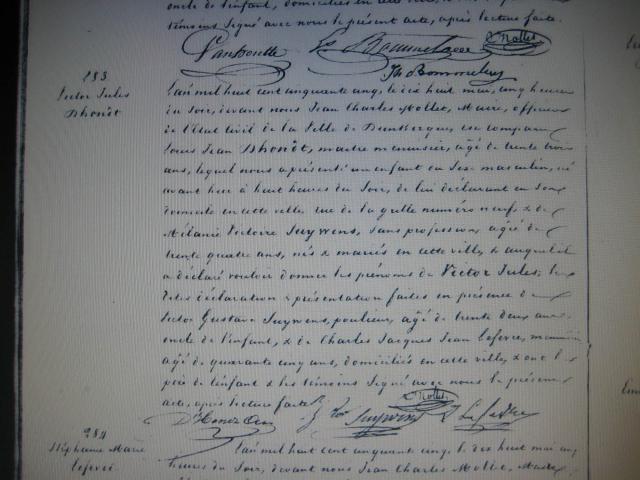 oncle de l'enfant, domiciliés en cette ville,
témoins signé avec nous le présent acte, après lecture faite.
Vanhoutte
Mollet
283
Victor Jules
Dhondt
L'an mil huit cent cinquante cinq, le dix huit mai, cinq heures
du soir, devant nous Jean Charles Mollet, Maire, officier
de l'état civil de la ville de Dunkerque, est comparu
Louis Jean Dhondt, maitre menuisier, âgé de trente trois
ans, lequel nous a présenté un enfant du sexe masculin, né
avant hier à huit heures du soir, de lui déclarant en son
domicile en cette ville, rue de la grille numéro neuf, & de
Mélanie Victoire Suywens, sans profession, âgée de
trente quatre ans, nés & mariés en cette ville, & auquel il
a déclaré vouloir donner les prénoms de Victor Jules; les
dites déclaration & présentation faites en présence de
Victor Gustave Suywens, poulieur, âgé de trente deux ans
oncle de l'enfant, & de Charles Jacques Jean Lefevre, menuisier
âgé de quarante cinq ans, domiciliés en cette ville, & ont le
père de l'enfant & les témoins signé avec nous le présent
acte, après lecture faite.
Mollet
Suywens Lefevre
284
Stéphanie Marie
Lefevre
L'an mil huit cent cinquante cinq, le dix huit mai, cinq
heures du soir, devant nous Jean Charles Mollet, Maire